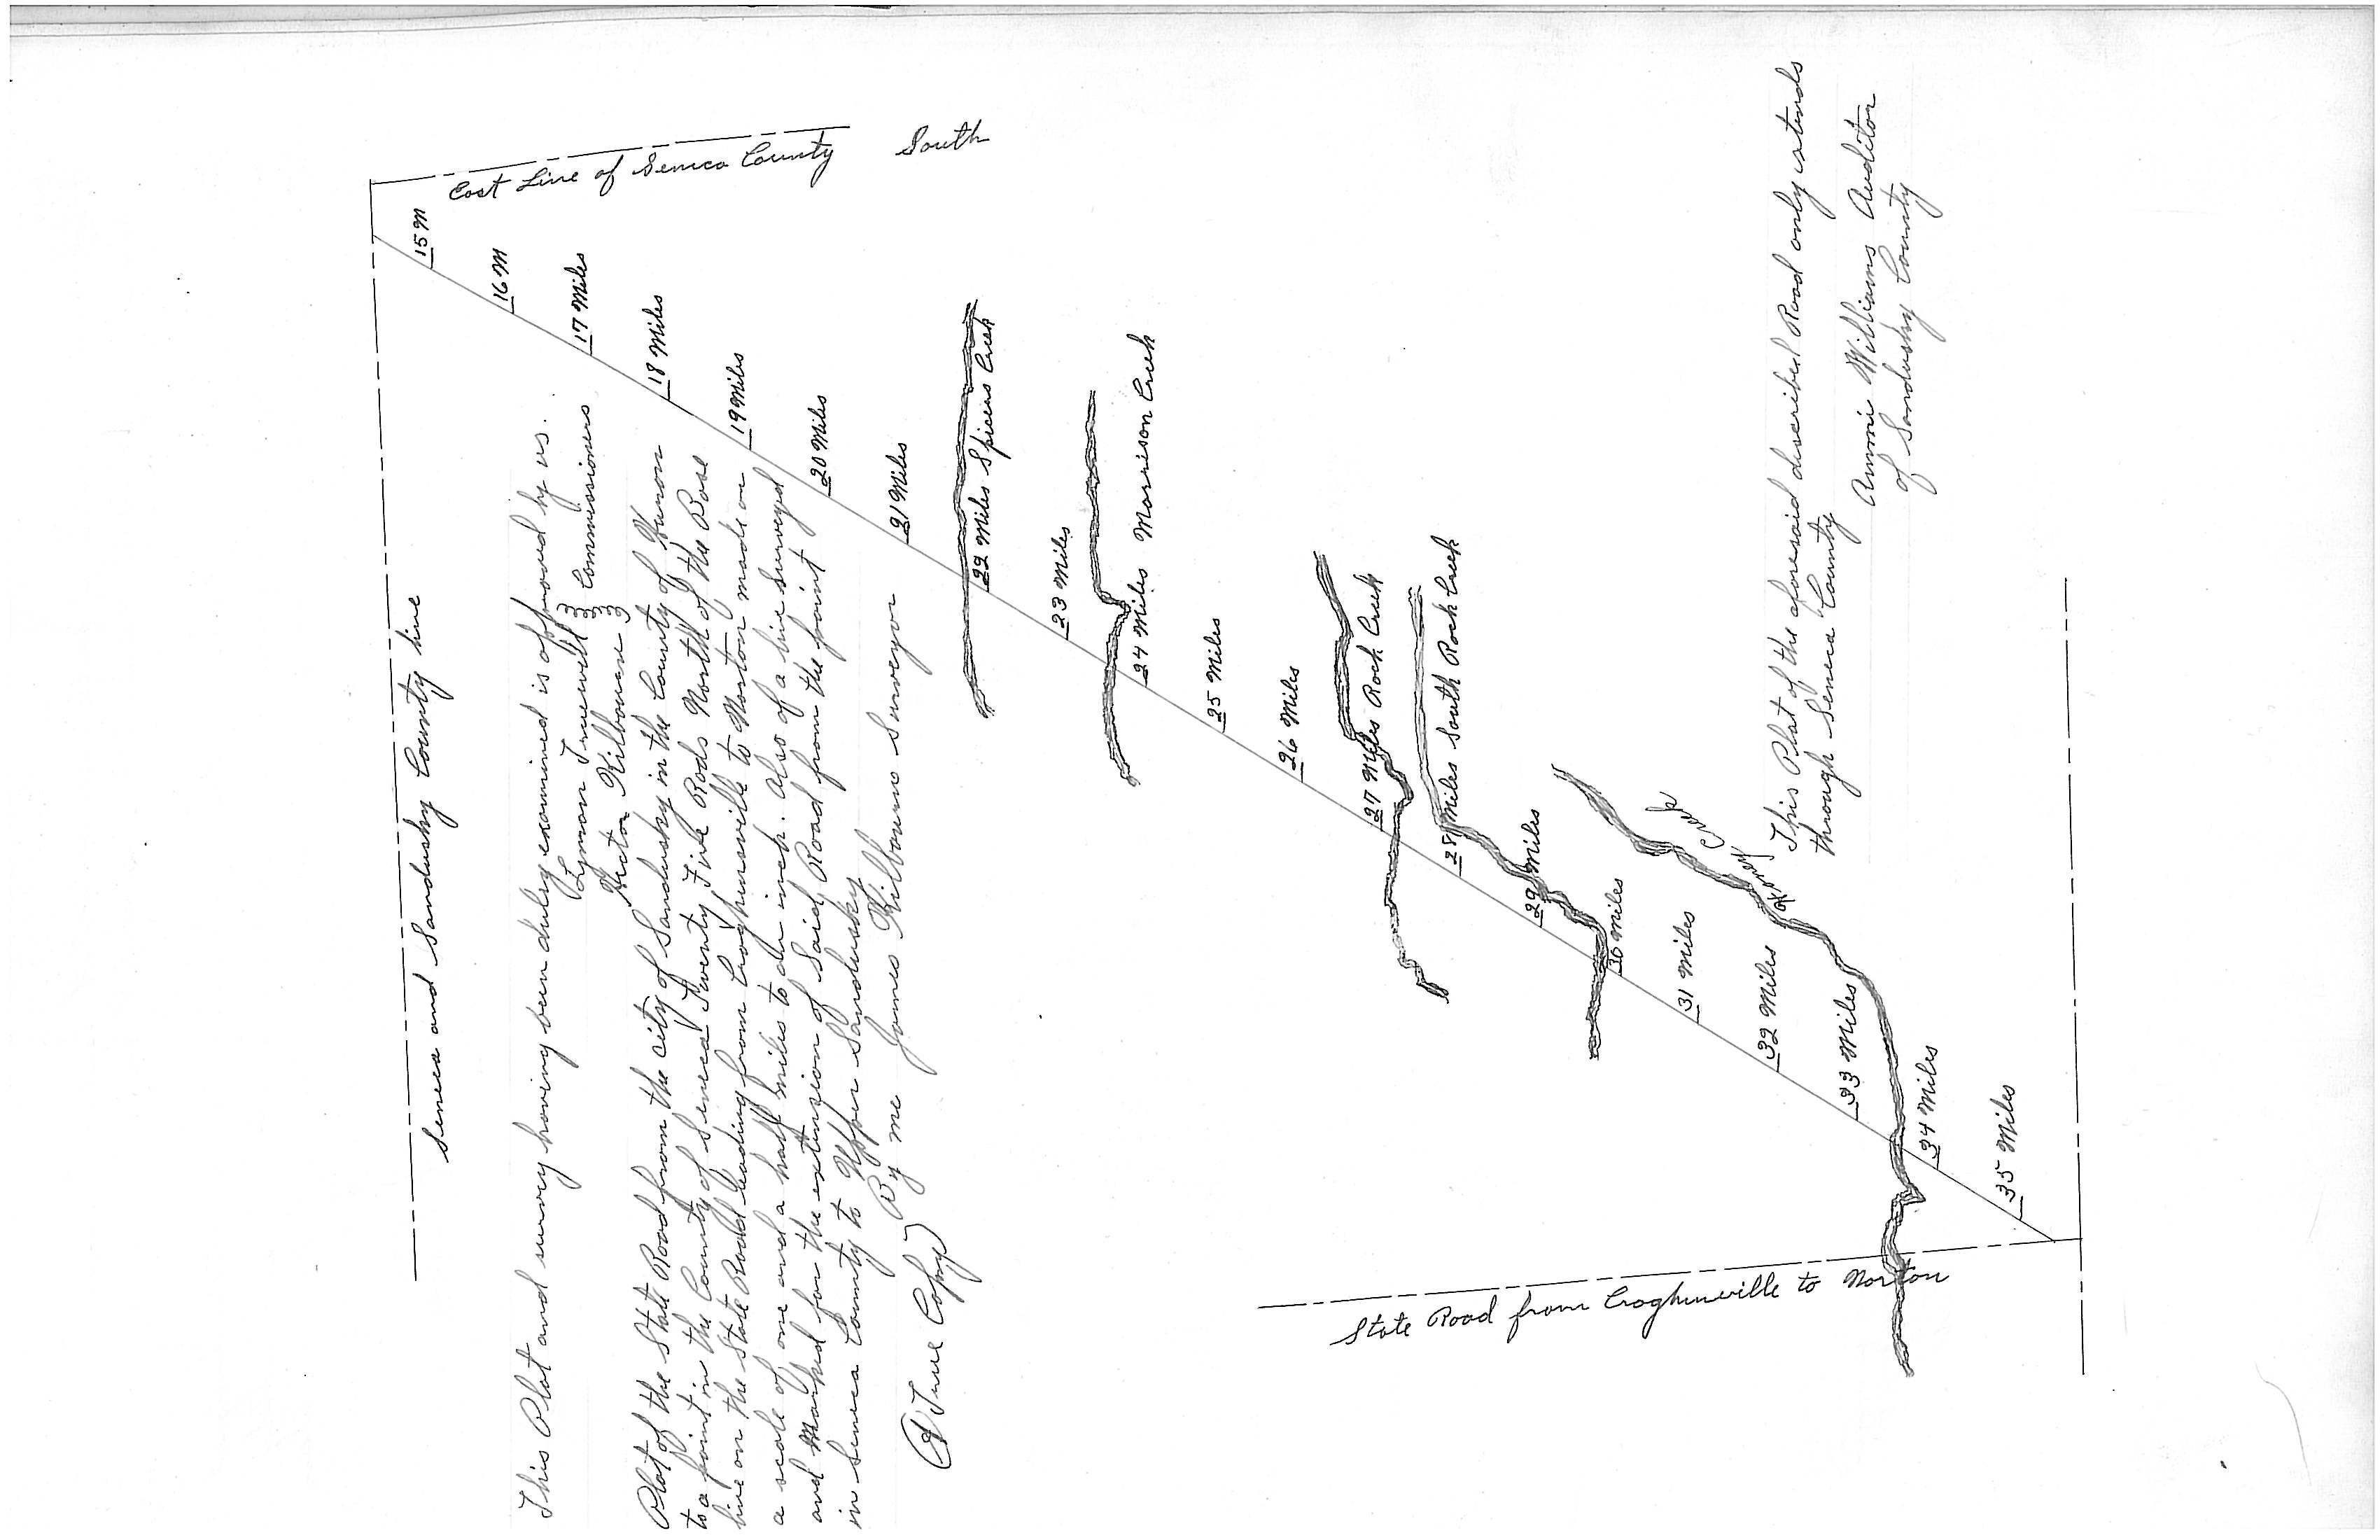 East Line of Seneca County South
Seneca and Sandusky County line
15 M
16 M
17 Miles
18 Miles
19 Miles
20 Miles
21 Miles
22 Miles Spicers Creek
23 Miles
24 Miles Morrison Creek
25 Miles
26 Miles
27 Miles Rock Creek
28 Miles South Rock Creek
29 Miles
30 Miles
31 Miles
32 Miles
33 Miles
34 Miles
35 Miles
Honey Creek
State Road from Croghunville to Norton
This Plat and survey having been duly examined is approved by us.
Lyman 3
3 Commissioners
Hector Kilbourne 3
Plat of the State Road from the city of Sandusky in the County of Huron
to a point in the County of Seneca Seventy Five Rods North of the Base
line on the State Road leading from Croghunsville to Norton made on
a scale of one and a half miles to an inch. Also of a line surveyed
and Marked for the extension of Said Road from the point
in Seneca County to Upper Sandusky
By me James Kilbourne Surveyor
(A True Copy)
This Plat of the aforesaid described Road only extends
through Seneca County
Ammi Williams Auditor
of Sandusky County